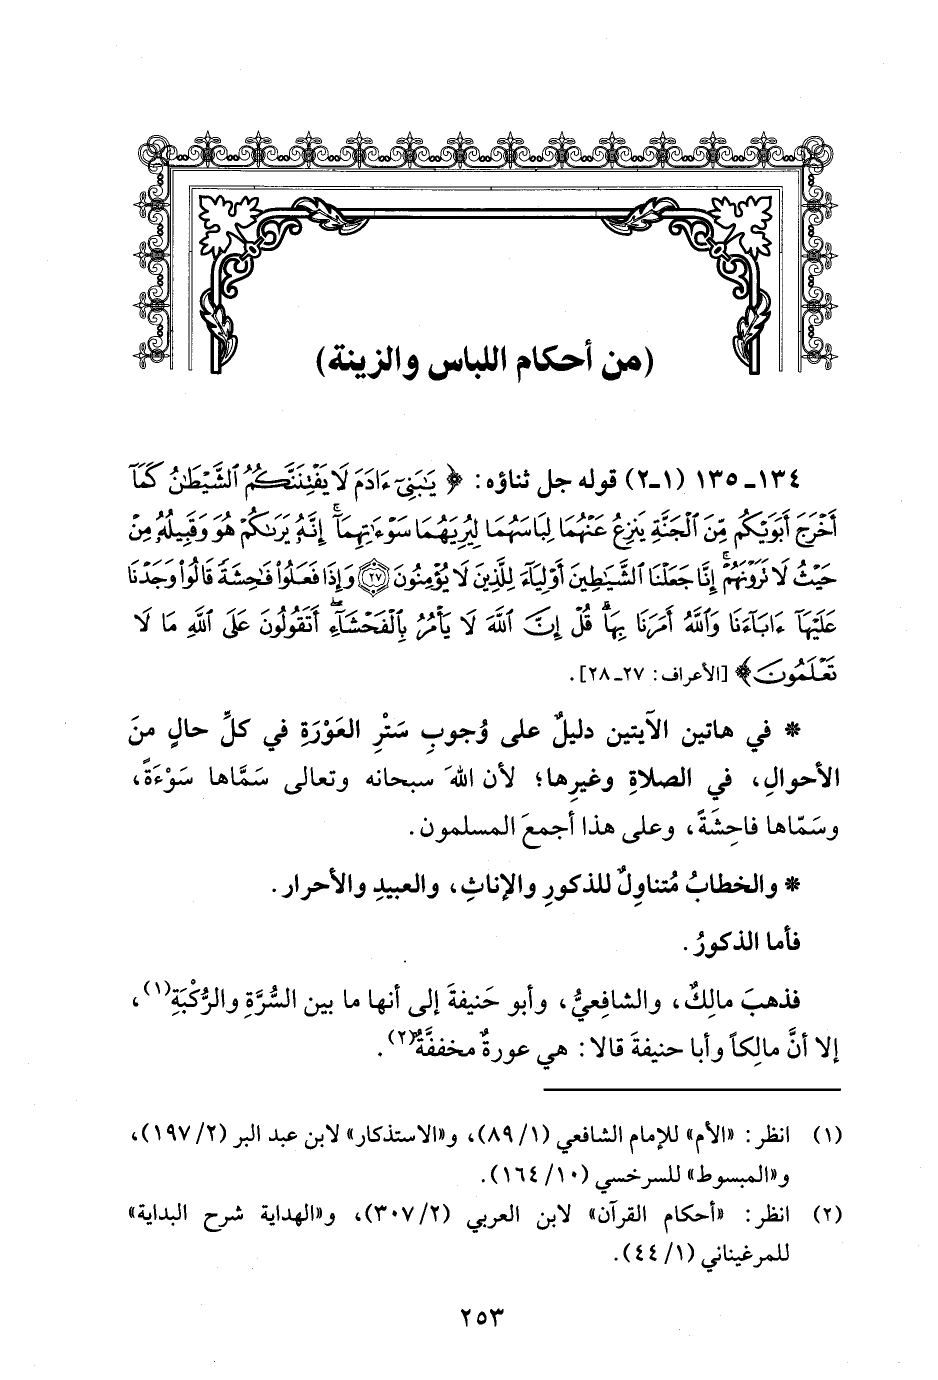 (من أحكام اللباس والزينة)
١٣٤ـ ١٣٥ (١ـ٢) قوله جل ثناؤه: ﴿يَٰبَنِيٓ ءَادَمَ لَا يَفْتِنَنَّكُمُ ٱلشَّيْطَٰنُ كَمَآ
أَخْرَجَ أَبَوَيْكُم مِّنَ ٱلْجَنَّةِ يَنزِعُ عَنْهُمَا لِبَاسَهُمَا لِيُرِيَهُمَا سَوْءَٰتِهِمَآ ۗ إِنَّهُۥ يَرَىٰكُمْ هُوَ وَقَبِيلُهُۥ مِنْ
حَيْثُ لَا تَرَوْنَهُمْ ۗ إِنَّا جَعَلْنَا ٱلشَّيَٰطِينَ أَوْلِيَآءَ لِلَّذِينَ لَا يُؤْمِنُونَ ۝٢٧ وَإِذَا فَعَلُوا۟ فَٰحِشَةً قَالُوا۟ وَجَدْنَا
عَلَيْهَآ ءَابَآءَنَا وَٱللَّهُ أَمَرَنَا بِهَا ۗ قُلْ إِنَّ ٱللَّهَ لَا يَأْمُرُ بِٱلْفَحْشَآءِ ۖ أَتَقُولُونَ عَلَى ٱللَّهِ مَا لَا
تَعْلَمُونَ﴾ [الأعراف: ٢٧ـ٢٨].
* في هاتين الآيتين دليلٌ على وُجوبِ سَتْرِ العَوْرَةِ في كلِّ حالٍ منَ
الأحوالِ، في الصلاةِ وغيرِها؛ لأن اللهَ سبحانه وتعالى سَمَّاها سَوْءَةً،
وسَمّاها فاحِشَةً، وعلى هذا أجمعَ المسلمون.
* والخطابُ مُتناوِلٌ للذكورِ والإناثِ، والعبيدِ والأحرار.
فأما الذكورُ.
فذهبَ مالِكٌ، والشافِعيُّ، وأبو حَنيفةَ إلى أنها ما بين السُّرَّةِ والرُّكْبَةِ(١)،
إلا أنَّ مالِكاً وأبا حنيفةَ قالا: هي عورةٌ مخففَّةٌ(٢).
(١) انظر: «الأم» للإمام الشافعي (١/ ٨٩)، و«الاستذكار» لابن عبد البر (٢/ ١٩٧)،
و«المبسوط» للسرخسي (١٠/ ١٦٤).
(٢) انظر: «أحكام القرآن» لابن العربي (٢/ ٣٠٧)، و«الهداية شرح البداية»
للمرغيناني (١/ ٤٤).
٢٥٣